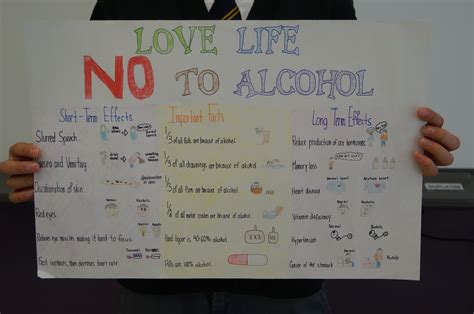 LOVE LIFE
NO TO ALCOHOL
Short-Term Effects
Slurred Speech
Nausea and Vomiting
Discoloration of skin
Red eyes
Reduces eye muscles making it hard to focus
First increases, then decreases heart rate
Important Facts
1/3 of all falls are because of alcohol.
1/3 of all drownings are because of alcohol
1/3 of all fires are because of alcohol.
1/2 of all motor crashes are because of alcohol.
Hard liquor is 40-60% alcohol.
Pills are 100% alcohol.
Long Term Effects
Reduce production of sex hormones
Memory loss
Heart disease
Vitamin deficiency
Hypertension
Cancer of the stomach